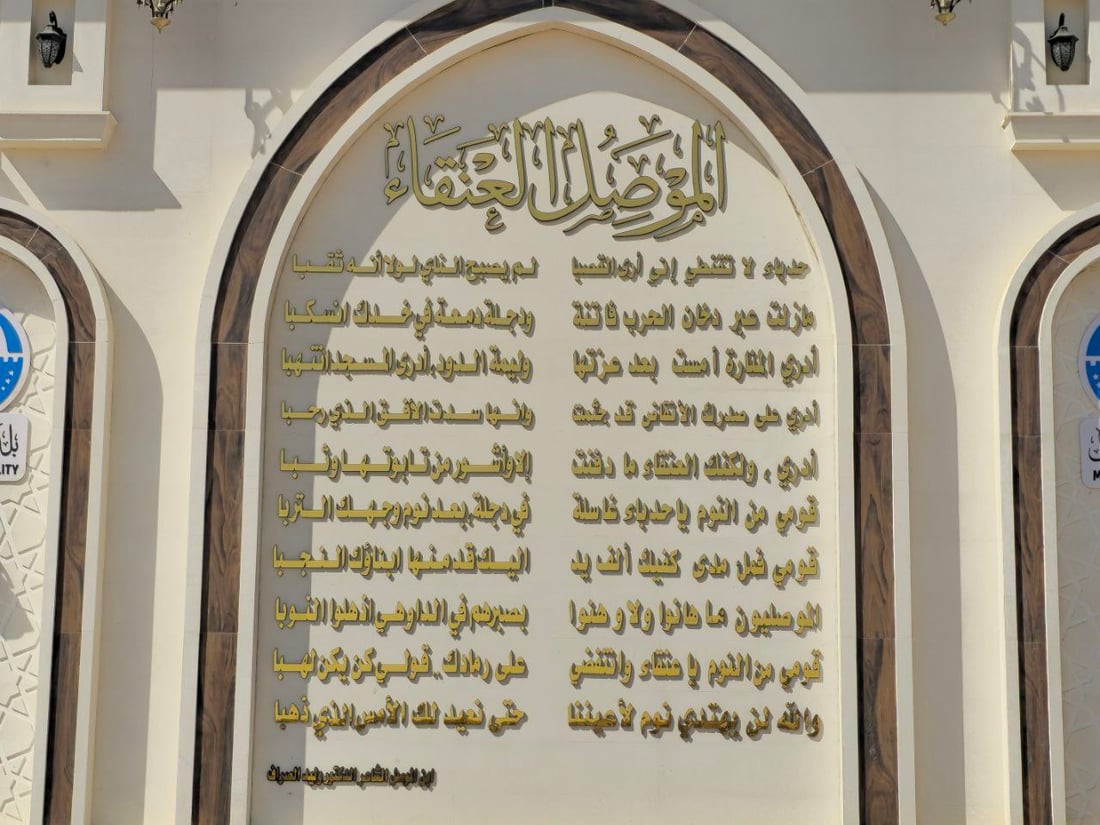 الموصل العنقاء
حدباء لا تنتفضي إني أرى القصبا لم يصبح الناي لولا أنه ثقبا
مازلت عبر دخان الحرب فاتنة ودجلة دمعة في خدك انسكبا
أدري المنارة أمست بعد عزتها وليمة الدود، أدرى المسجد انتهبا
أدري على صدرك الأنقاض قد جثمت وانها سدت الأفق الذي رحبا
أدري، ولكنك العنقاء ما دفنت إلا وأشور من تابوتها وثبا
قومي من النوم ياحدباء غاسلة في دجلة، بعد نوم وجهك التربا
قومي فمل مدى كفيك ألف يد اليك قد منها ابناؤك النجبا
الموصليون ما هانوا ولا وهنوا بصبرهم في الدواهي اذهلوا النوبا
قومي من النوم يا عنقاء وانتفضي على رمادك.. قولي كن يكن لهبا
والله لن يهتدي نوم لأعيننا حتى نعيد لك الأمس الذي ذهبا
ابن الموصل الشاعر الدكتور وليد الصراف
ITY
M